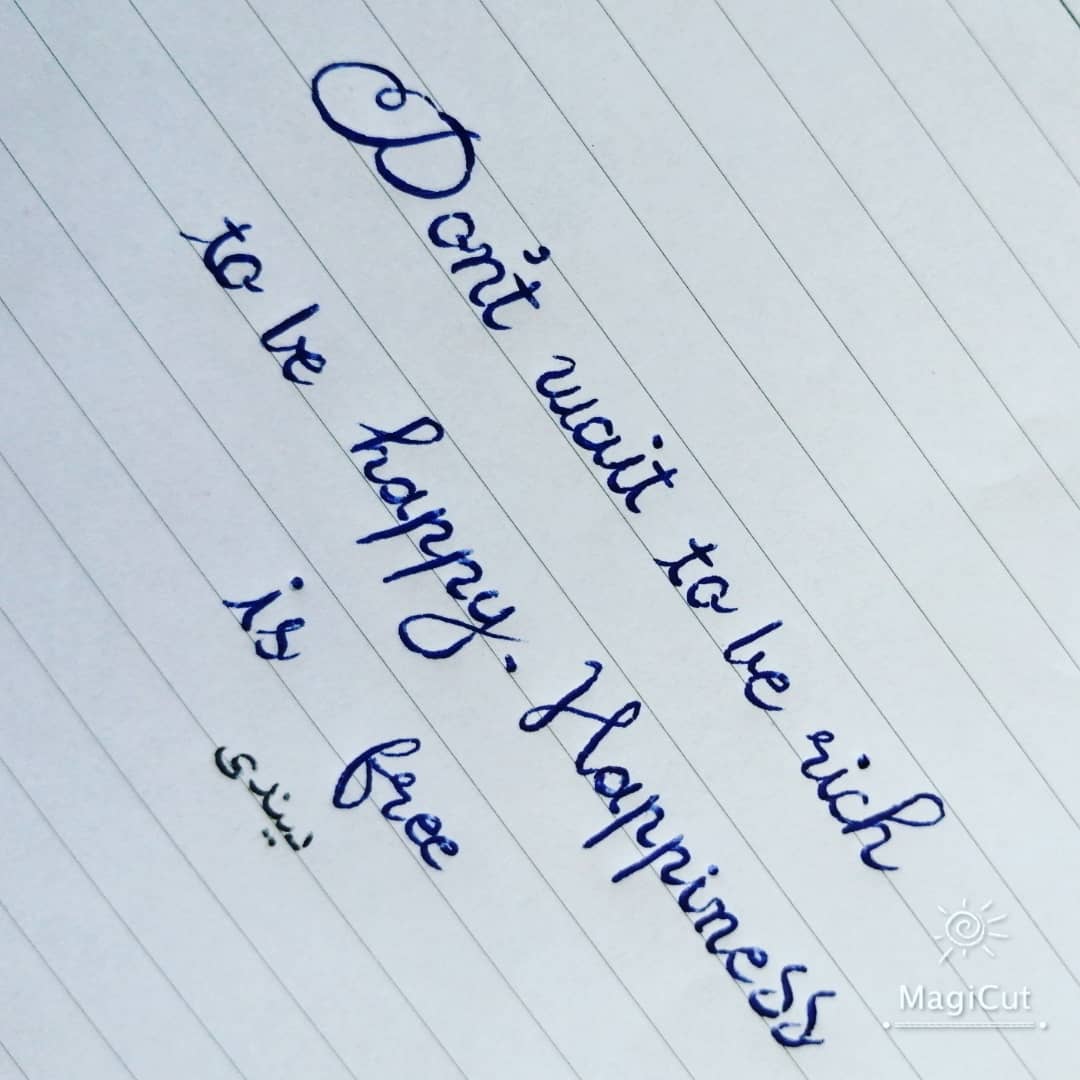 Don't wait to be rich
to be happy. Happiness
is free
MagiCut